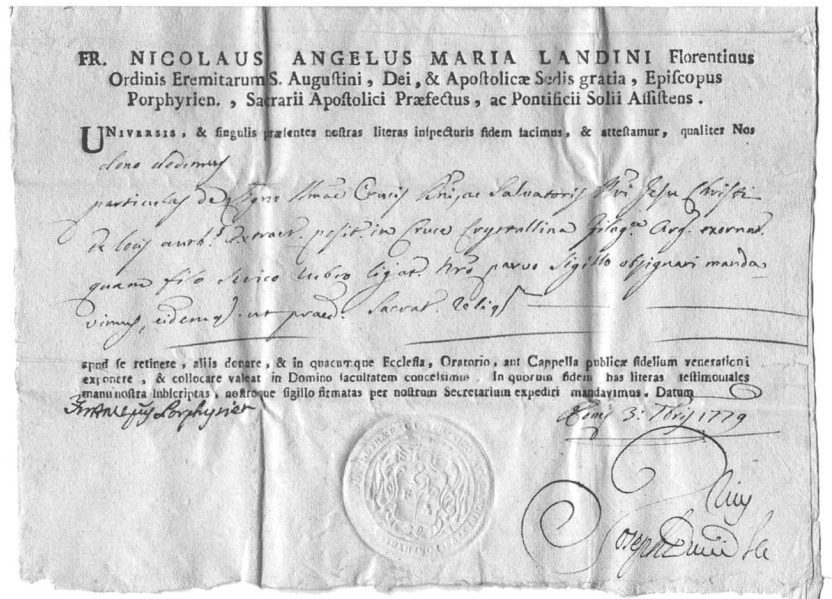 FR. NICOLAUS ANGELUS MARIA LANDINI Florentinus
Ordinis Eremitarum S. Augustini, Dei, & Apostolicæ Sedis gratia, Epiſcopus
Porphyrien., Sacrarii Apoſtolici Præfectus, ac Pontificii Solii Aſſiſtens.
UNIVERSIS, & ſingulis præſentes noſtras literas inſpecturis fidem facimus, & atteſtamur, qualiter Nos
dono dedimus
particulas de Ligno Crucis Salvatoris Jesu Christi
ex locis extract. posit. in Cruce Crystallina exornat.
quam filo Serico rubro ligat. parvo Sigillo obsignari manda
vimus, eidemq. ut praed. Sacrat. Reliq
apud ſe retinere, aliis donare, & in quacumque Eccleſia, Oratorio, aut Cappella publicæ fidelium venerationi
exponere, & collocare valeat in Domino facultatem conceſſimus. In quorum fidem has literas teſtimoniales
manu noſtra ſubſcriptas, noſtroque ſigillo firmatas per noſtrum Secretarium expediri mandavimus. Datum
Porphyrien
3. 1779